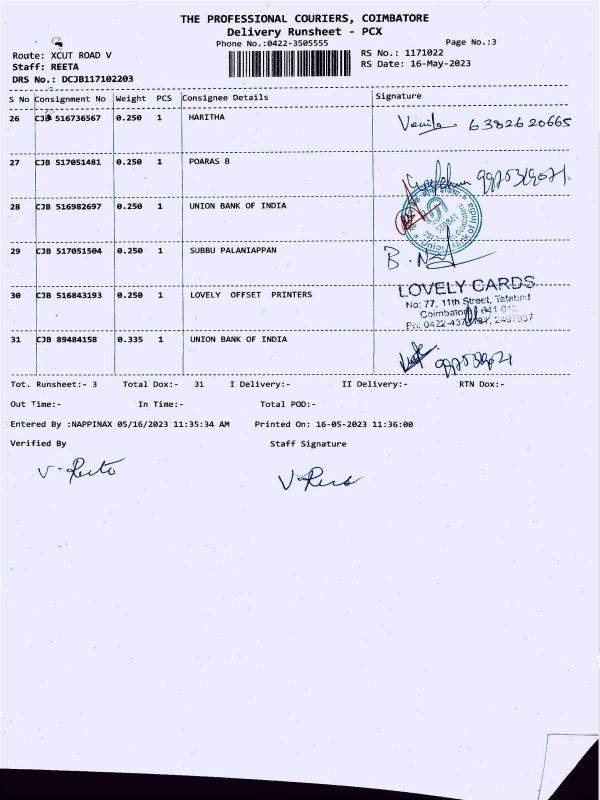 THE PROFESSIONAL COURIERS, COIMBATORE
Delivery Runsheet - PCX
Phone No.:0422-3505555 Page No.:3
Route: XCUT ROAD V RS No.: 1171022
Staff: REETA RS Date: 16-May-2023
DRS No.: DCJB117102203
S No Consignment No Weight PCS Consignee Details Signature
26 CJB 516736567 0.250 1 HARITHA 6382620665
27 CJB 517051481 0.250 1 POARAS B
28 CJB 516982697 0.250 1 UNION BANK OF INDIA
29 CJB 517051504 0.250 1 SUBBU PALANIAPPAN
30 CJB 516843193 0.250 1 LOVELY OFFSET PRINTERS LOVELY CARDS
No: 77, 11th Street, Tatabad
Coimbatore 641 012
31 CJB 89484158 0.335 1 UNION BANK OF INDIA
Tot. Runsheet:- 3 Total Dox:- 31 I Delivery:- II Delivery:- RTN Dox:-
Out Time:- In Time:- Total POD:-
Entered By :NAPPINAX 05/16/2023 11:35:34 AM Printed On: 16-05-2023 11:36:00
Verified By Staff Signature
V. Reeta